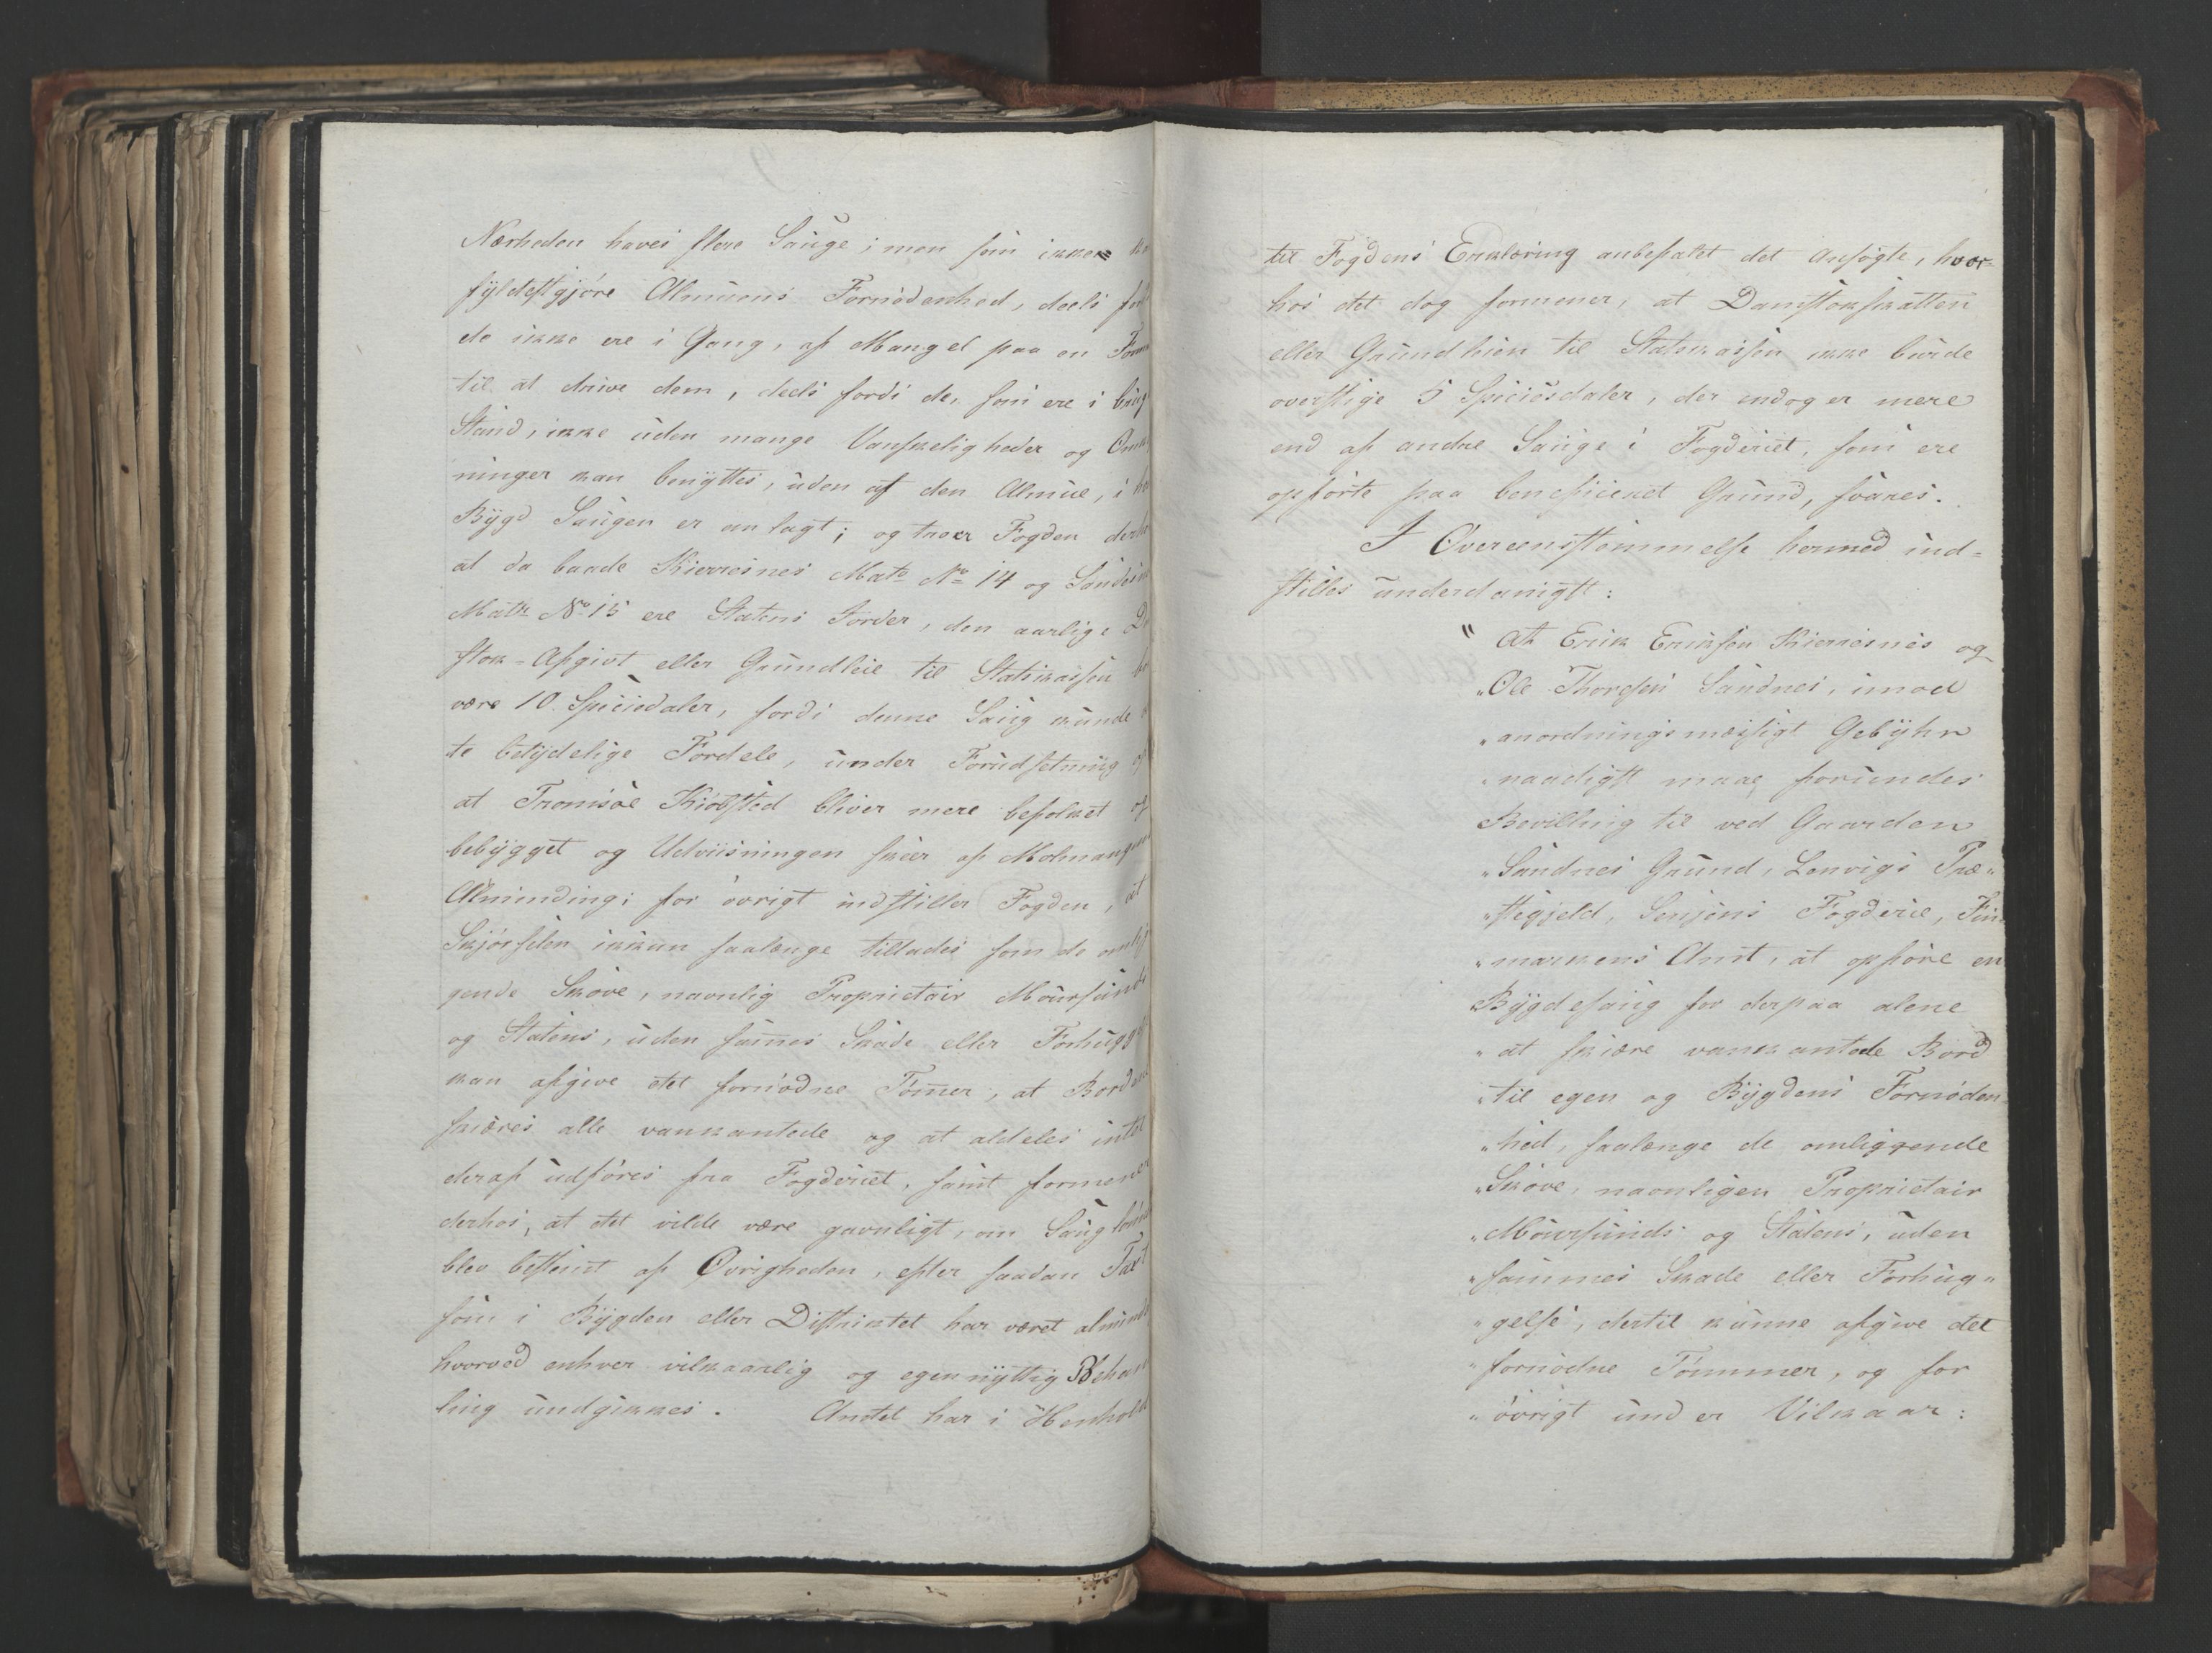 Nærheden haves flere Sauge; men som ikke
fyldestgjøre Almuens Fornødenhed, deels
de ikke ere i Gang, af Mangel paa en
til at drive dem, deels fordi de, som ere i brug
Stand, ikke uden mange Vanskeligheder og
ninger kan benyttes, uden af den Almue, i
Bygd Saugen er anlagt; og troer Fogden
at da baade Kierresnes Matr No 14 og
Matr No 15 ere Statens Jorder, den aarlige
stok-Afgivt eller Grundleie til Statskassen
være 10 Speciedaler, fordi denne Saug kunde
te betydelige Fordele, under Forudsetning
at Tromsøe Kiøbsted bliver mere befolket og
bebygget og Udviisningen skeer af
Alminding; for øvrigt indstiller Fogden, at
Skjørselen ikkun saalænge tillades som de omlig
gende Skove, navnlig Proprietair Moursunds
og Statens, uden sam̄es Skade eller
kan afgive det fornødne Tøm̄er, at Bordene
skiæres alle vankantede og at aldeles intet
deraf udføres fra Fogderiet, samt formener
derhos, at det vilde være gavnligt, om
blev bestemt af Øvrigheden, efter saadan Taxt
som i Bygden eller Distriktet har været
hvorved enhver vilkaarlig og egennyttig
ling undgikkes. Amtet har i Henhold
til Fogdens Erklæring anbefalet det Ansøgte, hvor-
hos det dog formener, at Damstokskatten
eller Grundleien til Statskassen ikke burde
overstige 5 Speciesdaler, der endog er mere
end af andre Sauge i Fogderiet, som ere
opførte paa beneficeret Grund, svares.
I Overeensstemmelse hermed ind-
stilles underdanigst:
" At Erik Eriksen Kierresnes og
"Ole Thoresen Sandnes, imod
"anordningsmæssigt Gebyhr
"naadigst maae forundes
Bevilling til ved Gaarden
"Sandnes Grund, Lenvigs Præ"
"stegjeld, Senjens Fogderie, Fin-
"markens Amt, at opføre en
Bygdesaug for derpaa alene
"at skiære vankantede Bord
"til egen og Bygdens Fornøden-
"hed, saalænge de omliggende
"Skove, navnligen Proprietair
"Moursunds og Statens, uden
"sammes Skade eller Forhug"
"gelse, dertil kunne afgive det
"fornødne Tømmer, og for
"øvrigt under Vilkaar: